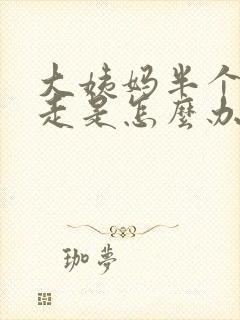 大姨妈半个
走是怎麽办
珈夢